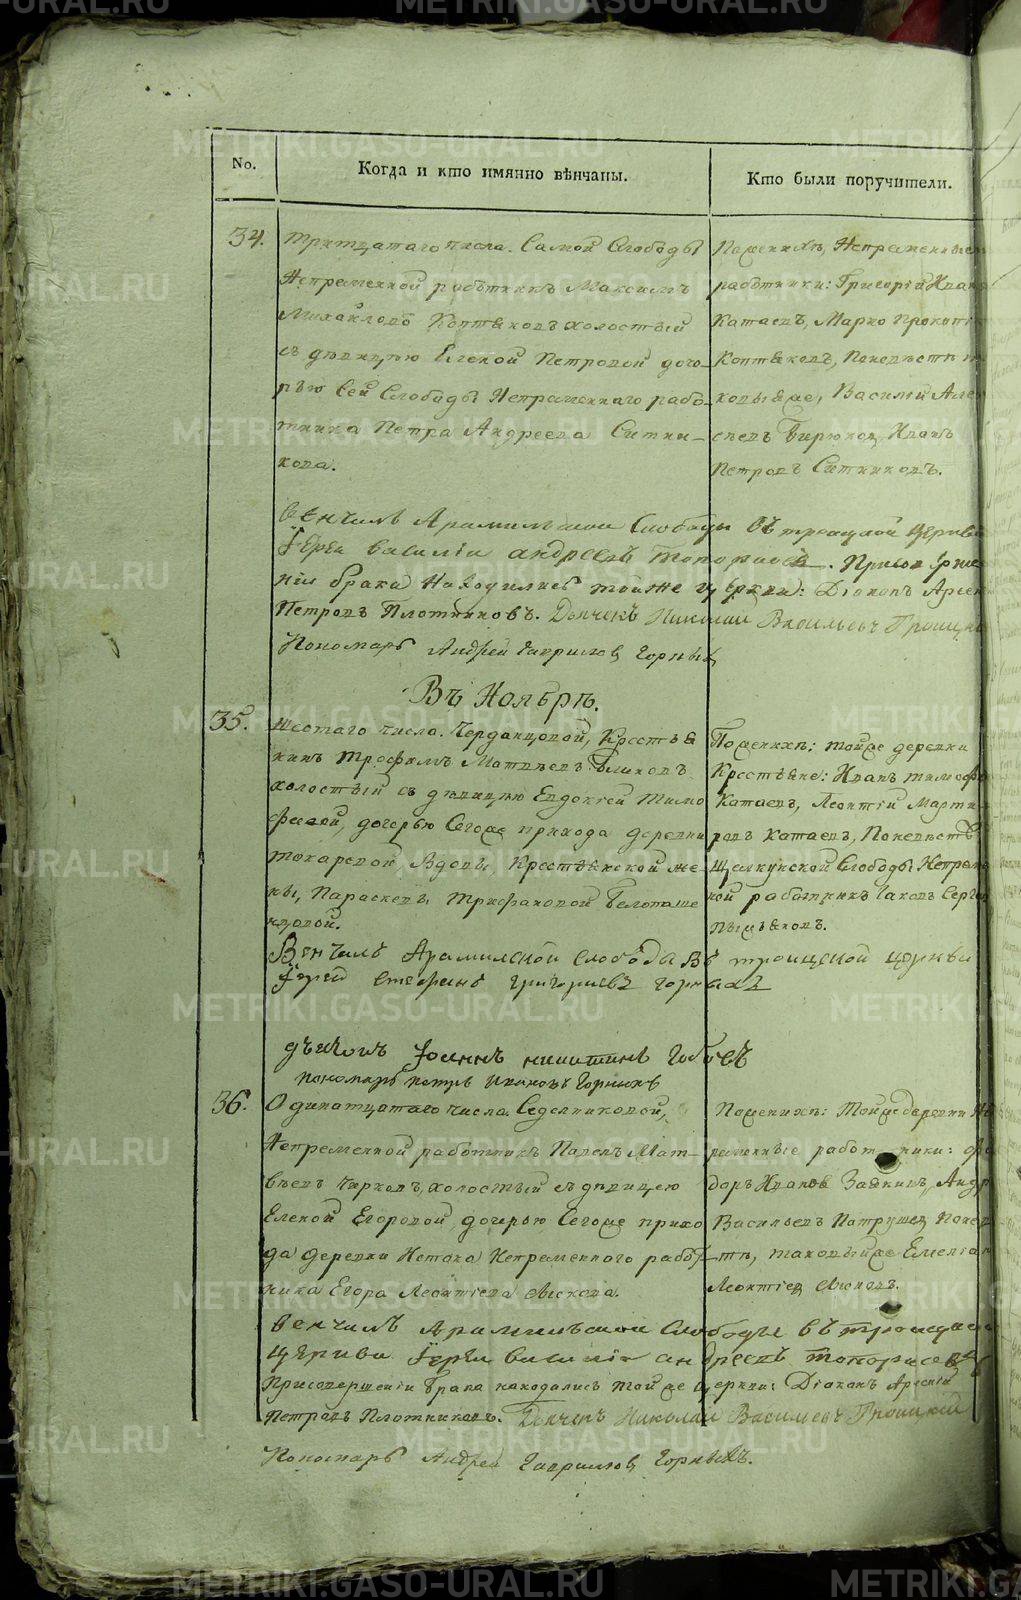 No.
Когда и кто имянно вѣнчаны.
Кто были поручители.
34.
тритцатаго числа. Самой Слободы
Непременной работникъ Максимъ
Михайловъ Коптяковъ холостый
съ дѣвицею Еленой Петровой доче-
рью сей Слободы Непременнаго рабо-
тника Петра Андреева Ситни-
кова.
Поженихѣ, Непременные
работники: Григорій Иван
Катаевъ, Марко Прокопь
Коптяковъ, Поневѣстѣ т
ковыеже, Василий Алек
сеевъ Бирюков, Иванъ
Петровъ Ситниковъ.
Венчалъ Арамильской Слободы въ троицкой церкви
Іерей Василій Андреевъ Топорковъ. При
ніи брака Находились тойже церкви: Діаконъ Арсен
Петровъ Плотниковъ. Дьячекъ Николай Васильевъ Троицко
Пономарь Андрей Гаврилов Горныхъ
Въ Ноябрѣ.
35.
шестаго числа. Черданцовой, Крестья
нинъ Трофимъ Матвѣевъ Блиновъ
холостый съ дѣвицею Евдокіей Тимо
феевой, дочерью Сегоже прихода деревни
токаревой Вдовы, Крестьянской же-
ны, Параскевы Трифановой Белоноше
нцовой.
Поженихѣ: тойже деревни
Крестьяне: Иванъ тимофе
Катаевъ, Леонтій Марти
ровъ Катаевъ, Поневѣстѣ
Щелкунской Слободы Непреме
ной работникъ Іаковъ Серге
Пьянковъ.
Венчалъ Арамилской слобода въ троицкой церкви
Іерей Стефанъ Григорьевъ Горныхъ
дьячокъ Іоаннъ никитинъ
пономарь петръ Ивановъ Горныхъ
36.
Одинатцатаго числа Седелниковой,
Непременной работникъ Павелъ Мат-
вѣевъ Чирковъ, холостый съ дѣвицею
Еленой Егоровой, дочерью Сегоже прихо
да деревни Истока Непременного работ-
ника Егора Леонтіева
Поженихѣ: Тойже деревни Не
ременные работники: Фе
доръ Ивановъ Заякинъ, Андр
Васильевъ Патрушев, Понев
стѣ, таковыйже Емелян
Леонтіев
Венчалъ Арамильской Слободы въ троицкой
церкви Іерей Василій андреевъ Топорковъ
Присовершеніи брака находились тойже церкви: Діаконъ Арсеній
Петровъ Плотниковъ. Дьячекъ Николай Васильевъ Троицкій
Пономарь Андрей Гаврилов Горныхъ.
METRIKI.GASO-URAL.RU